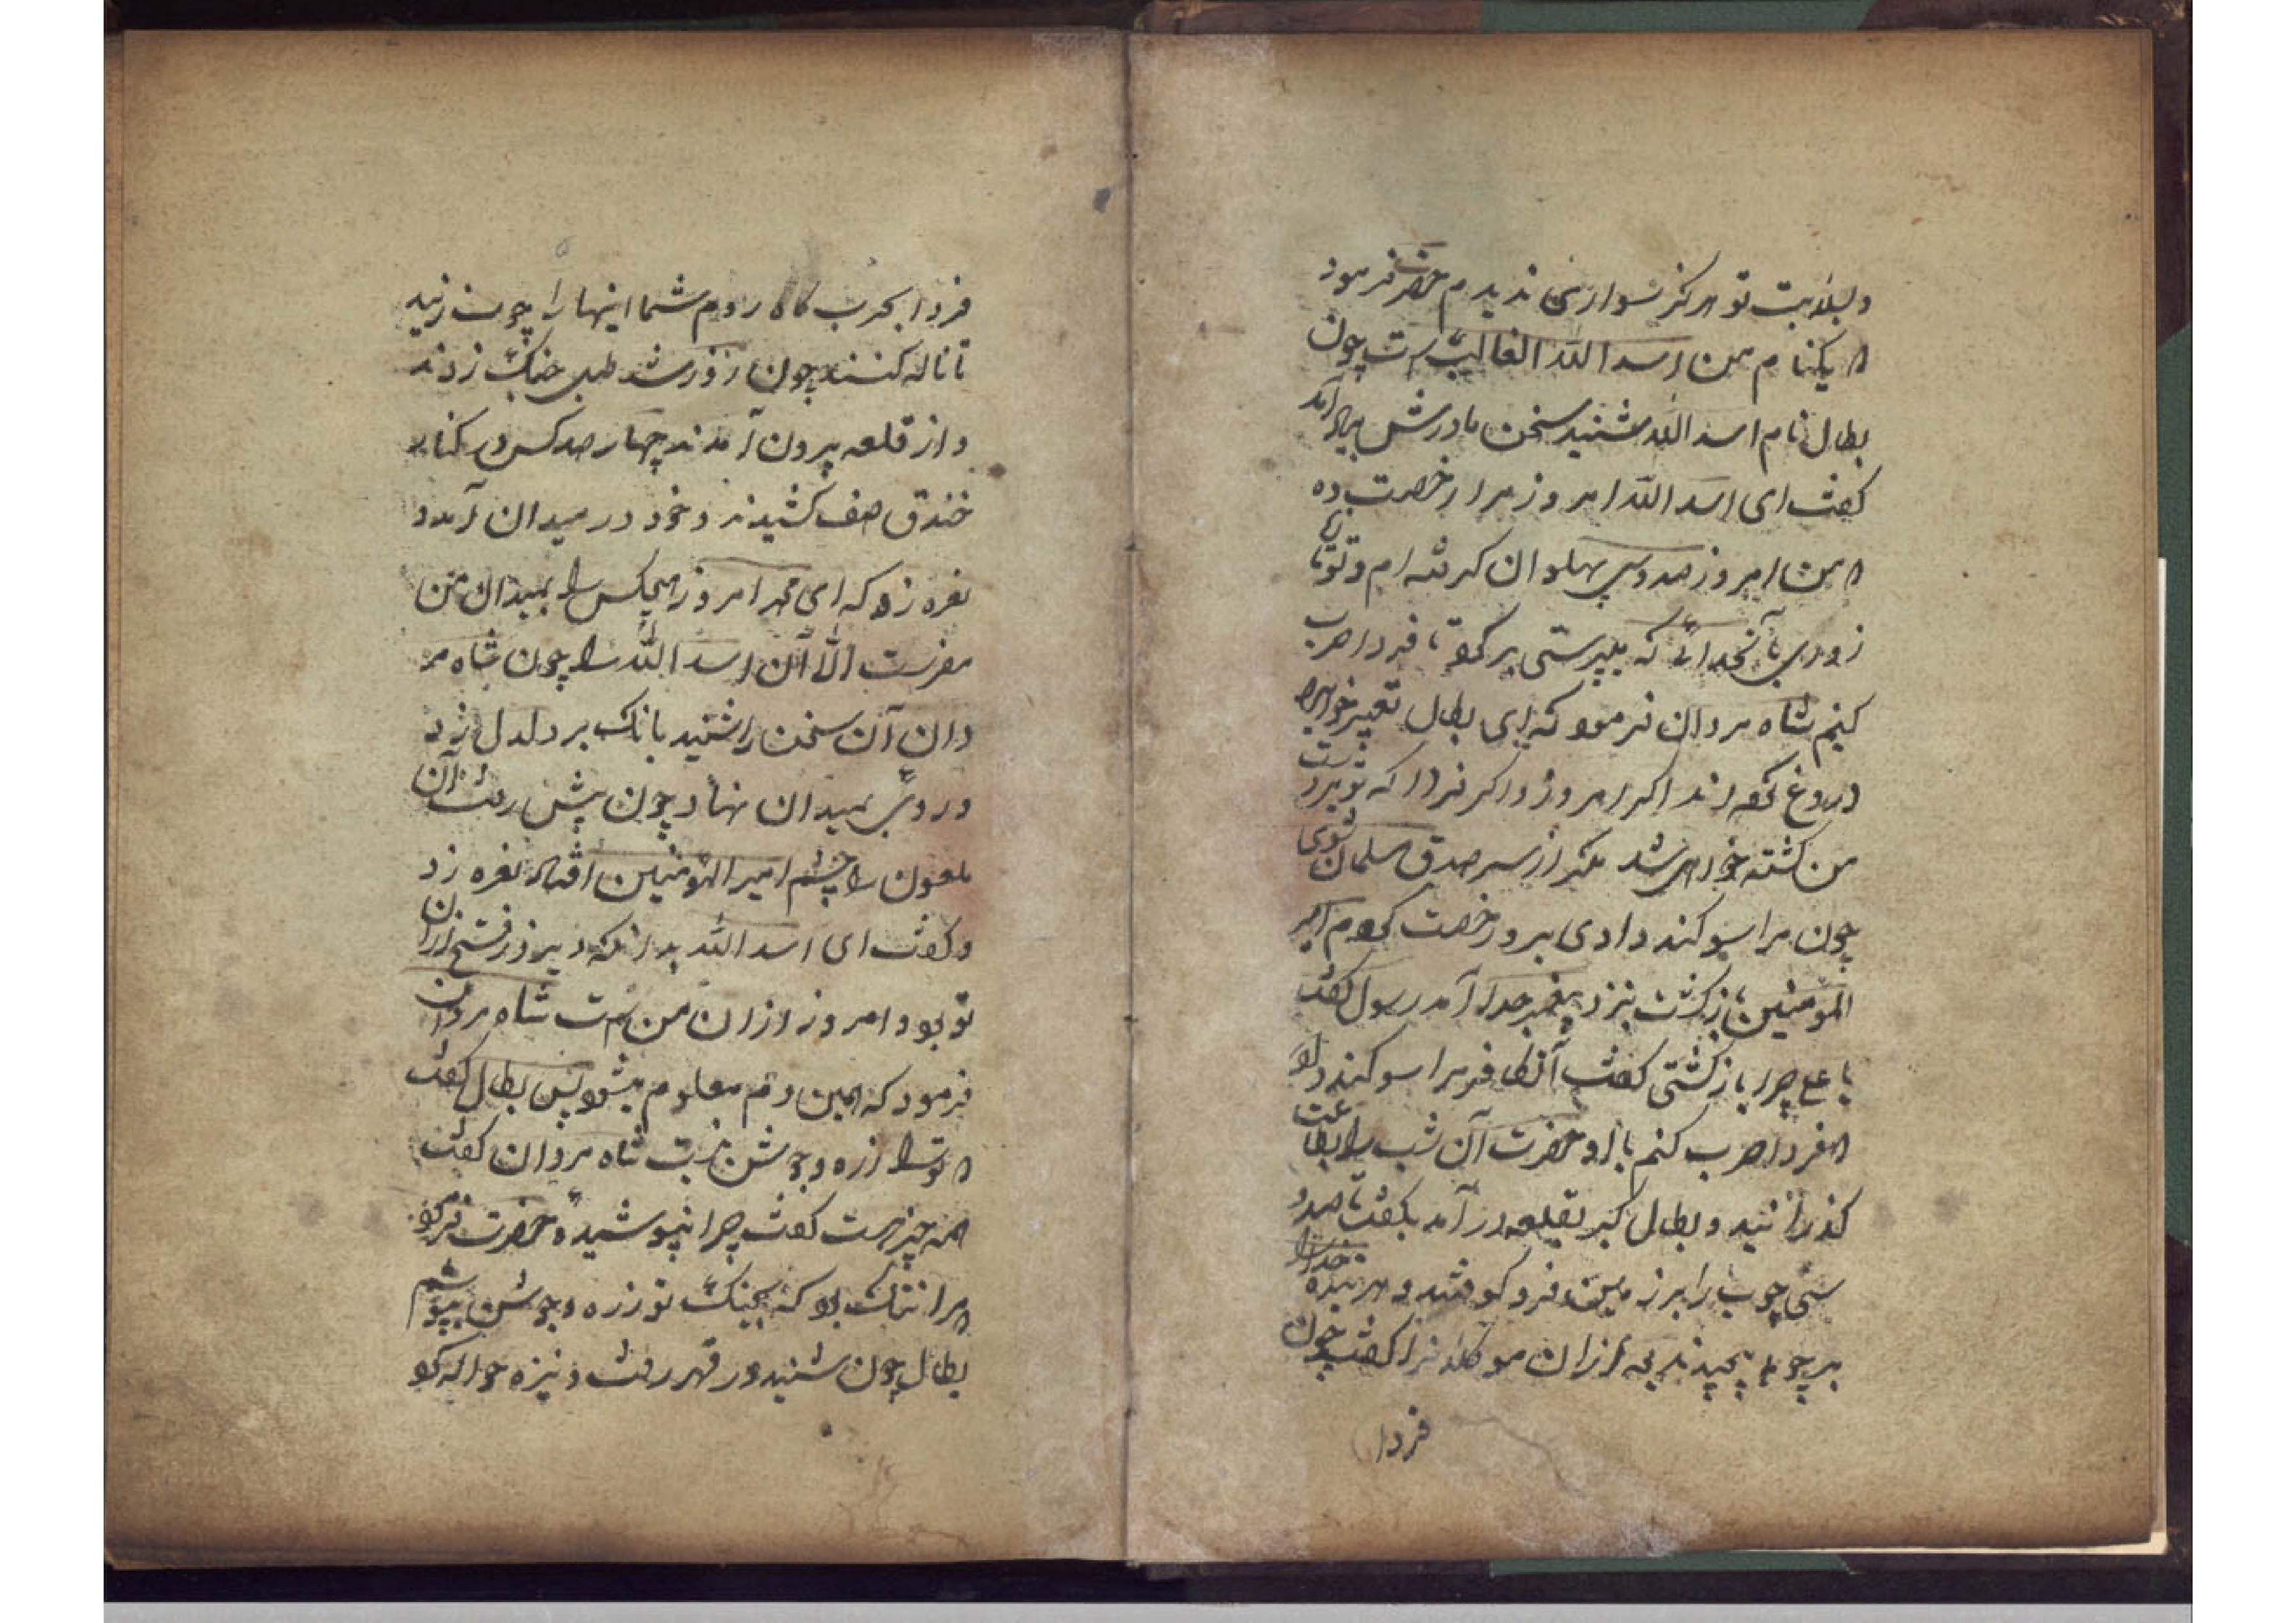 وبلابت تو هرکز سواری ندیدم حضرت فرمود
که یکنام من اسد الله الغالبست چون
بطال نام اسد الله شنید سخن مادرش بیاد آمد
کفت ای اسد الله امروز مرا رخصت ده
که من امروز صد وسی پهلوان کرفته ام وتو تا
زوری بآنخدائی که میپرستی برکرد تا فردا حرب
کنیم شاه مردان فرمود که ای بطال تعبیر خواب
دروغ کفته اند اکر امروز واکر فردا که تو بردست
من کشته خواهی شد مکر از سر صدق مسلمان شوی
چون مرا سوکند دادی برو رخصت کردم امیر
المؤمنین بازکشت نزد پیغمبر خدا آمد رسول کفت
یا علی چرا بازکشتی کفت آن کافر مرا سوکند داد
که فردا حرب کنم با او حضرت آن شب را بطاعت
کذرانید و بطال کبر بقلعه در آمد بکفت تا صد و
سی چوب را بر زمین فرو کوفتند و هر بنده خدا را
بر چوب پیچیدند بعد ازان موکلانرا کفت چون
فردا
فردا بحرب کاه روم شما اینها را چوب زنید
تا ناله کنند چون روز شد طبل جنک زدند
و از قلعه بیرون آمدند چهار صد کس در کنار
خندق صف کشیدند و خود در میدان آمد و
نعره زد که ای محمد امروز هیچکس را بمیدان من
مفرست الا آن اسد الله را چون شاه مر
دان آن سخن را شنید بانک بر دلدل زد
و روی بمیدان نهاد چون پیش رفت آن
ملعون را چشم بر امیر المؤمنین افتاد نعره زد
و کفت ای اسد الله بدانکه دیروز فتح ازان
تو بود امروز ازان من ست شاه مردان
فرمود که همین دم معلوم میشود پس بطال کفت
که ترا زره و جوشن نیست شاه مردان کفت
همه چیز هست کفت چرا نپوشیدهٔ حضرت فرمود
که مرا ننک بود که بجنک تو زره و جوشن بپوشم
بطال چون شنید در قهر رفت و نیزه حواله کرد